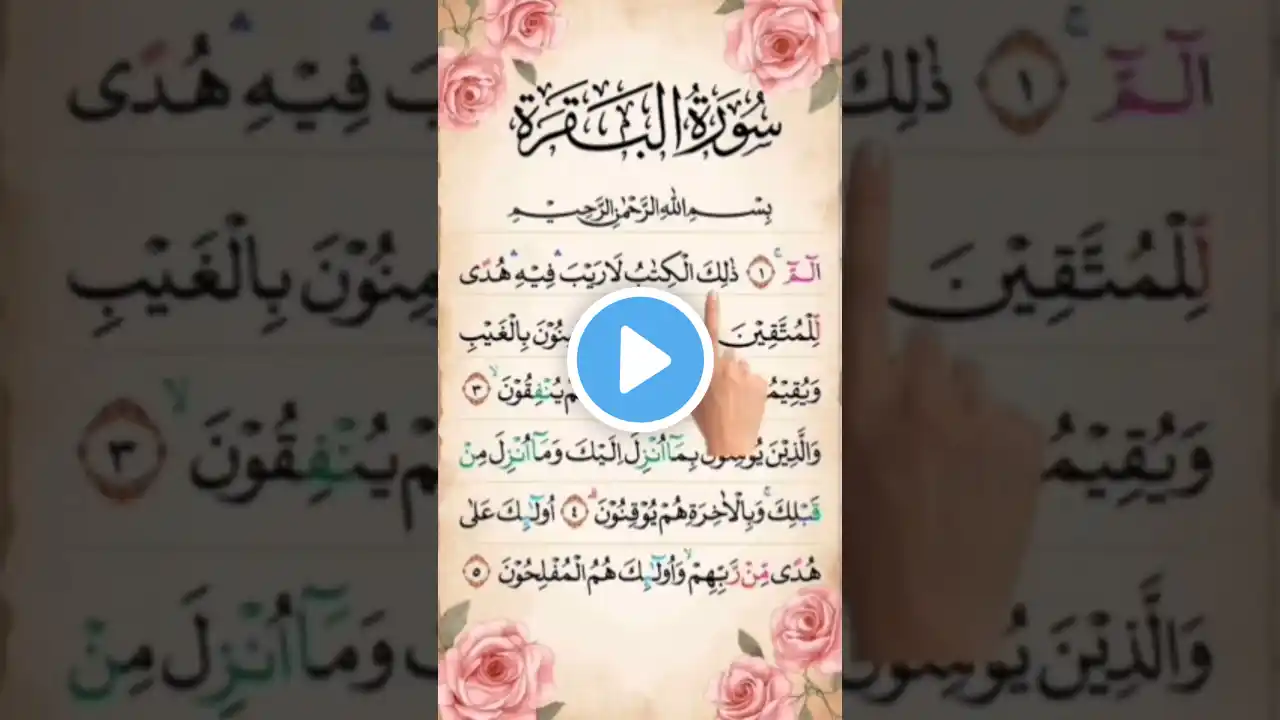 سُورَةُ الْبَقَرَة
بِسْمِ اللهِ الرَّحْمٰنِ الرَّحِيْمِ
الٓمّٓ ۚ ١ ذٰلِكَ الْكِتٰبُ لَا رَيْبَ ۛ فِيْهِ ۛ هُدًى
لِّلْمُتَّقِيْنَ بِالْغَيْبِ
يُنْفِقُوْنَ ۙ ٣
وَالَّذِيْنَ بِمَآ اُنْزِلَ اِلَيْكَ وَمَآ اُنْزِلَ مِنْ
قَبْلِكَ ۚ وَبِالْاٰخِرَةِ هُمْ يُوْقِنُوْنَ ٤ اُولٰٓئِكَ عَلٰى
هُدًى مِّنْ رَّبِّهِمْ ۙ وَاُولٰٓئِكَ هُمُ الْمُفْلِحُوْنَ ٥